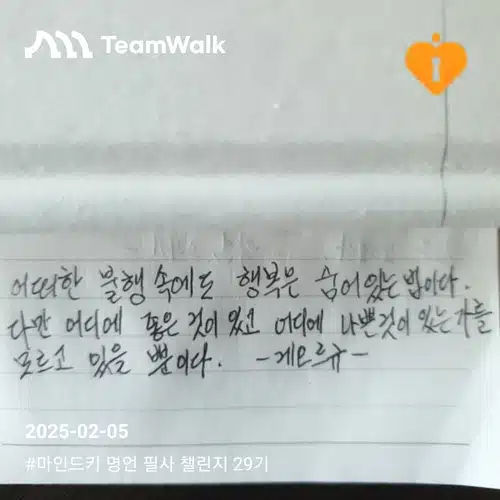 TeamWalk
i
어떠한 불행 속에도 행복은 숨어있는 법이다.
다만 어디에 좋은 것이 있고 어디에 나쁜것이 있는가를
모르고 있을 뿐이다. -게오르규-
2025-02-05
#마인드키 명언 필사 챌린지 29기